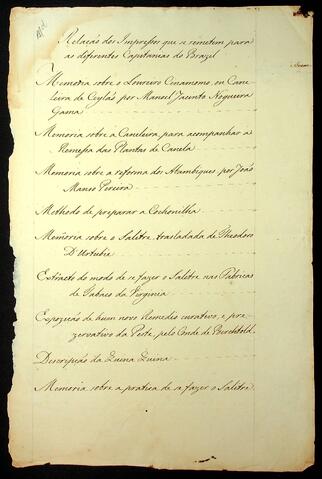 Relação dos Impressos que se remetem para
as differentes Capitanias do Brazil
Memoria sobre o Loureiro Cinamomo, ou Cane-
leira de Ceylão por Manoel Jacinto Nogueira
Gama
Memoria sobre a Caneleira para acompanhar a
Remessa das Plantas de Canela
Memoria sobre a reforma dos Alambiques por João
Manso Pereira
Methodo de preparar a Cochonilha
Memoria sobre o Salitre trasladada de Theodoro
D'Urtubie
Extracto do modo de se fazer o Salitre nas Fabricas
de Tabaco da Virginia
Expozição de hum novo Remedio curativo, e pre-
zervativo da Peste, pelo Conde de Berchtold
Descripção da Quina Quina
Memoria sobre a pratica de se fazer o Salitre